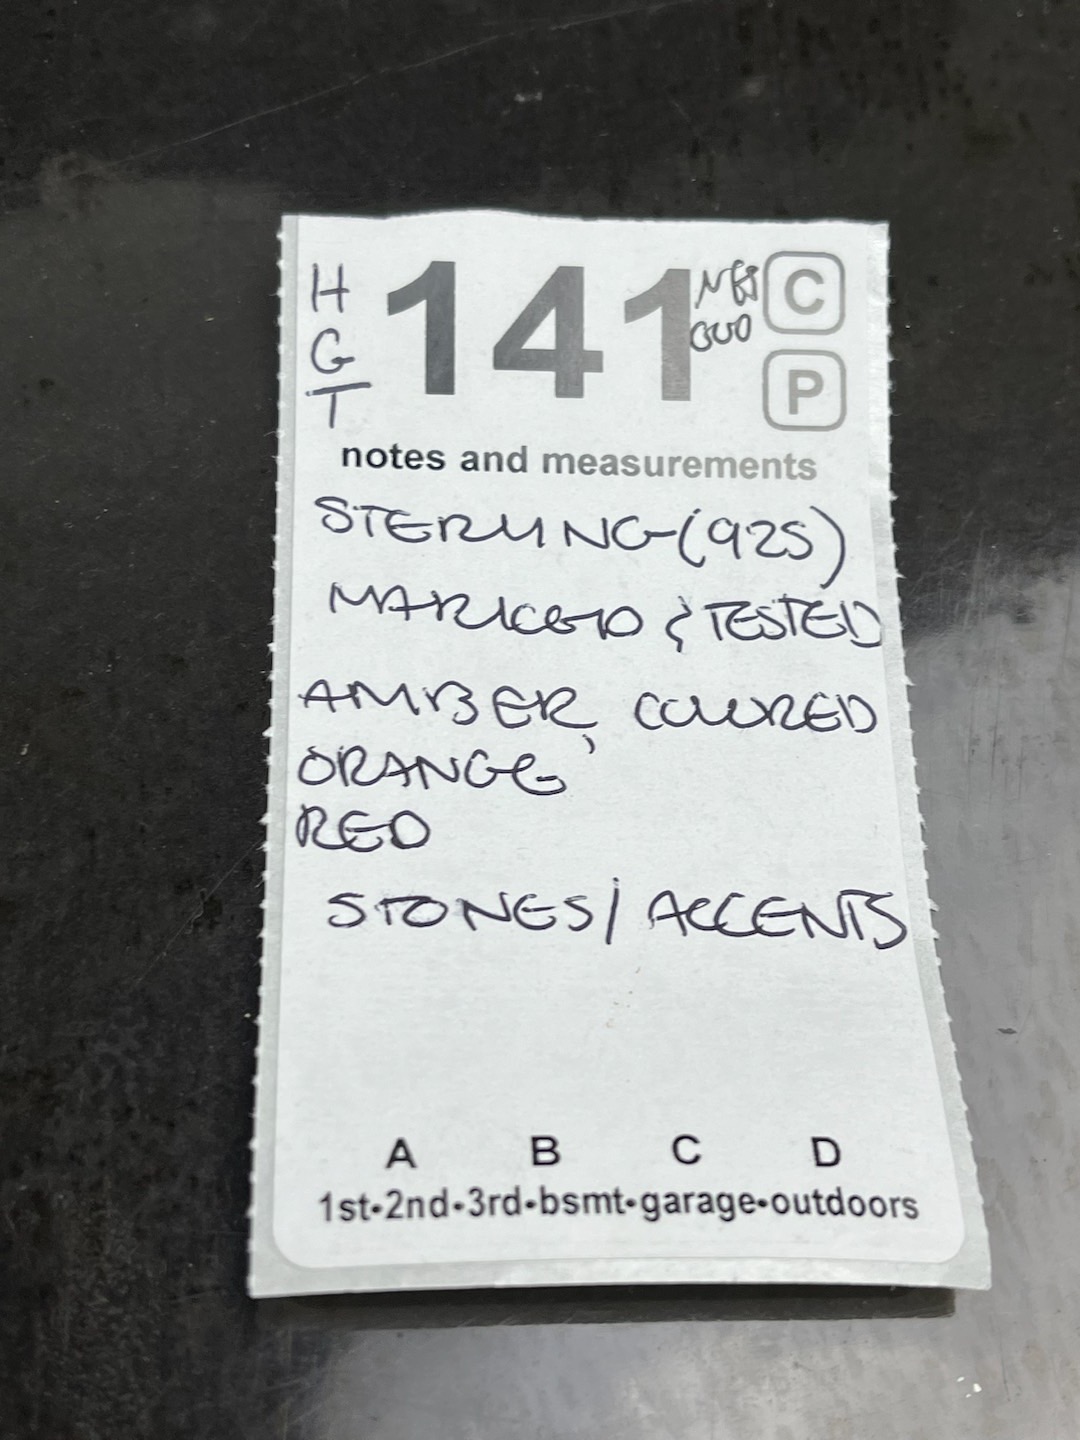 H
G
T
141
C
P
notes and measurements
STERLING (925)
MARKED & TESTED
AMBER, COLORED
ORANGE
RED
STONES / ACCENTS
A B C D
1st•2nd•3rd•bsmt•garage•outdoors